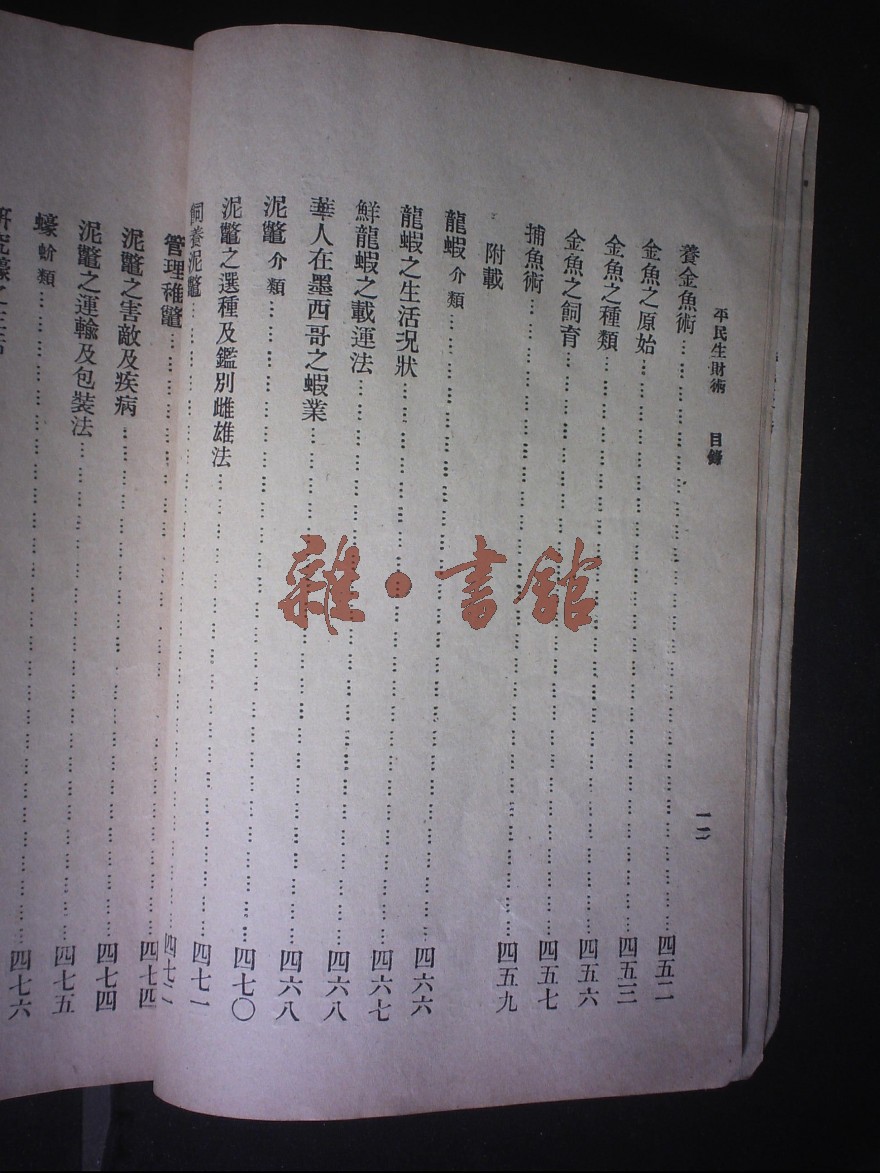 平民生財術 目錄 一二
養金魚術 … 四五二
金魚之原始 … 四五三
金魚之種類 … 四五六
金魚之飼育 … 四五七
捕魚術 … 四五九
附載
龍蝦 介類 … 四六六
龍蝦之生活況狀 … 四六七
鮮龍蝦之載運法 … 四六八
華人在墨西哥之蝦業 … 四六八
泥鼈 介類 … 四七〇
泥鼈之選種及鑑別雌雄法 … 四七一
飼養泥鼈 … 四七二
管理稚鼈 … 四七四
泥鼈之害敵及疾病 … 四七四
泥鼈之運輸及包裝法 … 四七五
蠔 蚧類 … 四七六
雜·書館